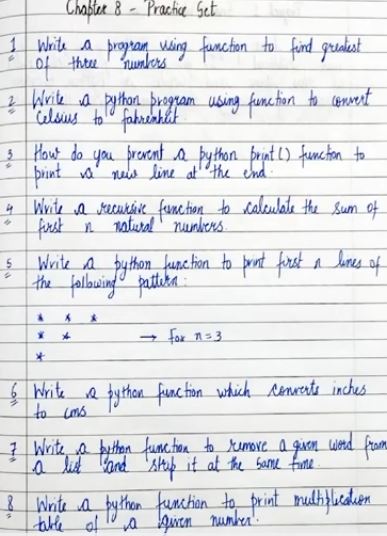 Chapter 8 - Practice Set
1 Write a program using function to find greatest
of three numbers
2 Write a python program using function to convert
Celsius to fahrenheit
3 How do you prevent a python print() function to
print a new line at the end.
4 Write a recursive function to calculate the sum of
first n natural numbers.
5 Write a python function to print first n lines of
the following pattern:
* * *
* * → For n=3
*
6 Write a python function which converts inches
to cms
7 Write a python function to remove a given word from
a list and strip it at the same time.
8 Write a python function to print multiplication
table of a given number.